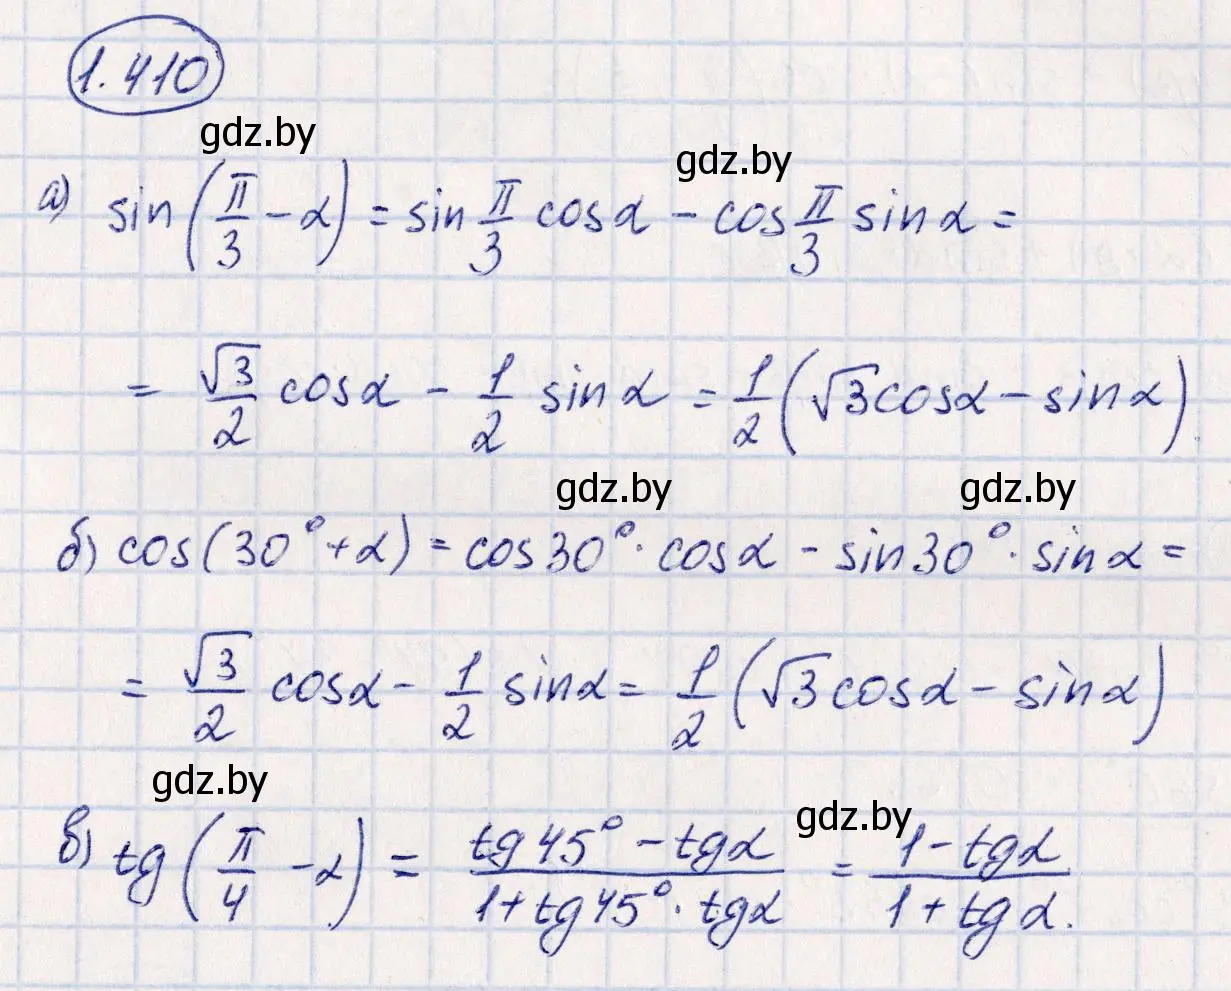 1.410
gdz.by
gdz.by
а) sin(π/3 - α) = sin π/3 cosα - cos π/3 sinα =
= √3/2 cosα - 1/2 sinα = 1/2 (√3cosα - sinα).
gdz.by
gdz.by
б) cos(30° + α) = cos30° · cosα - sin30° · sinα =
= √3/2 cosα - 1/2 sinα = 1/2 (√3cosα - sinα)
gdz.by
gdz.by
в) tg(π/4 - α) = (tg45° - tgα)/(1 + tg45° · tgα) = (1 - tgα)/(1 + tgα).